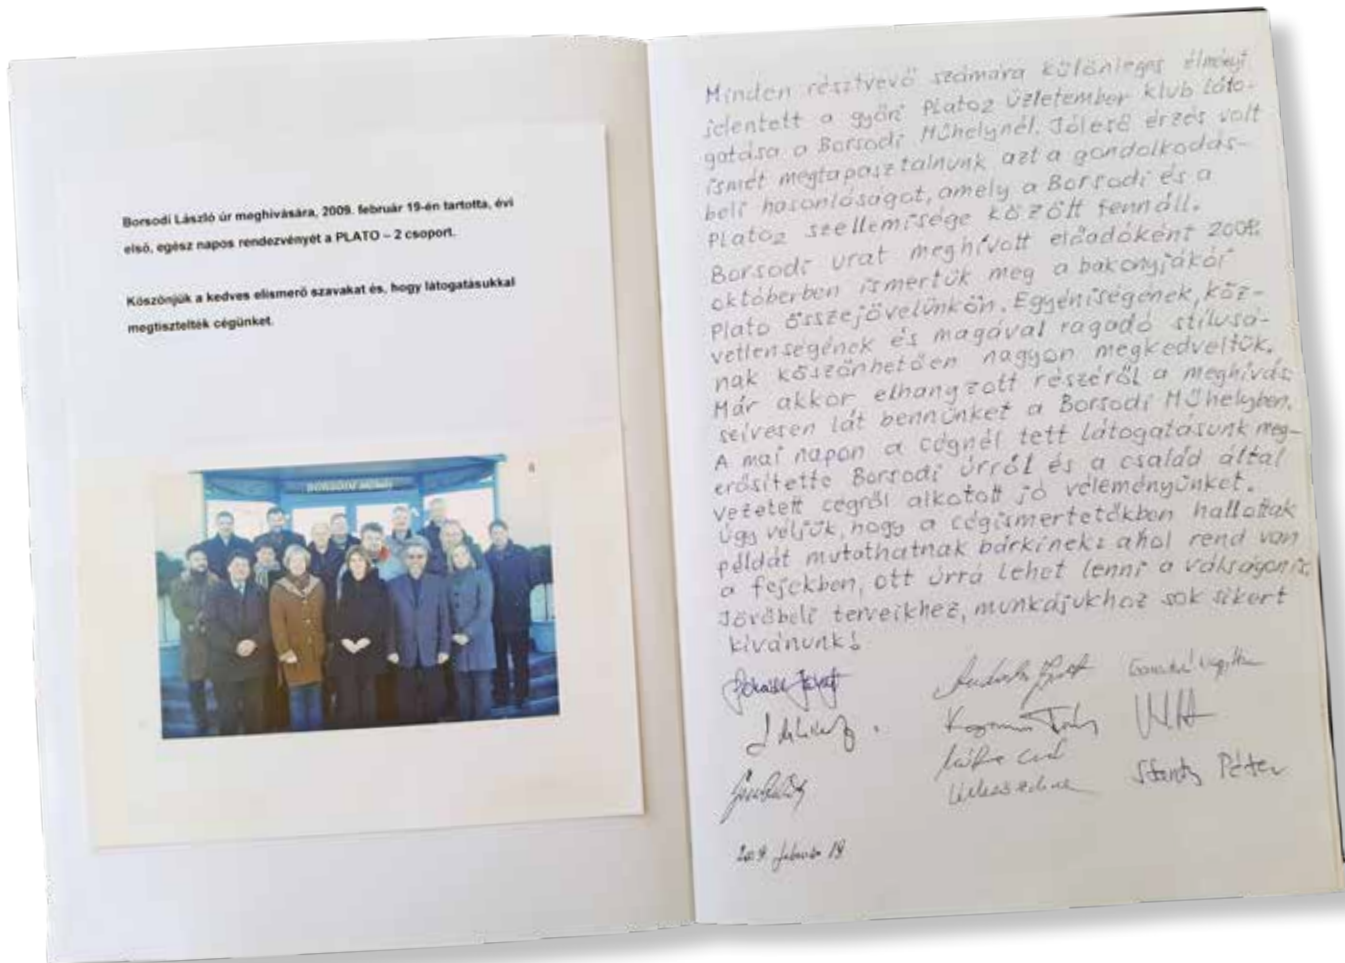 Borsodi László úr meghívására, 2009. február 19-én tartotta, évi
első, egész napos rendezvényét a PLATO – 2 csoport.
Köszönjük a kedves elismerő szavakat és, hogy látogatásukkal
megtisztelték cégünket.
BORSODI MŰHELY
Minden résztvevő számára különleges élményt
jelentett a győri Plato2 üzletember klub láto-
gatása a Borsodi Műhelynél. Jóleső érzés volt
ismét megtapasztalnunk azt a gondolkodás-
beli hasonlóságot, amely a Borsodi és a
Plato2 szellemisége között fennáll.
Borsodi urat meghívott előadóként 2008.
októberben ismertük meg a bakonyjákói
Plato összejövelünkön. Egyéniségének, köz-
vetlenségének és magával ragadó stílusá-
nak köszönhetően nagyon megkedveltük.
Már akkor elhangzott részéről a meghívás
szívesen lát bennünket a Borsodi Műhelyben.
A mai napon a cégnél tett látogatásunk meg-
erősítette Borsodi úrról és a család által
vezetett cégről alkotott jó véleményünket.
Úgy véljük, hogy a cégismertetőkben hallottak
példát mutathatnak bárkinek: ahol rend van
a fejekben, ott úrrá lehet lenni a válságon is.
Jövőbeli terveikhez, munkájukhoz sok sikert
kívánunk!
Péter
2009. február 19